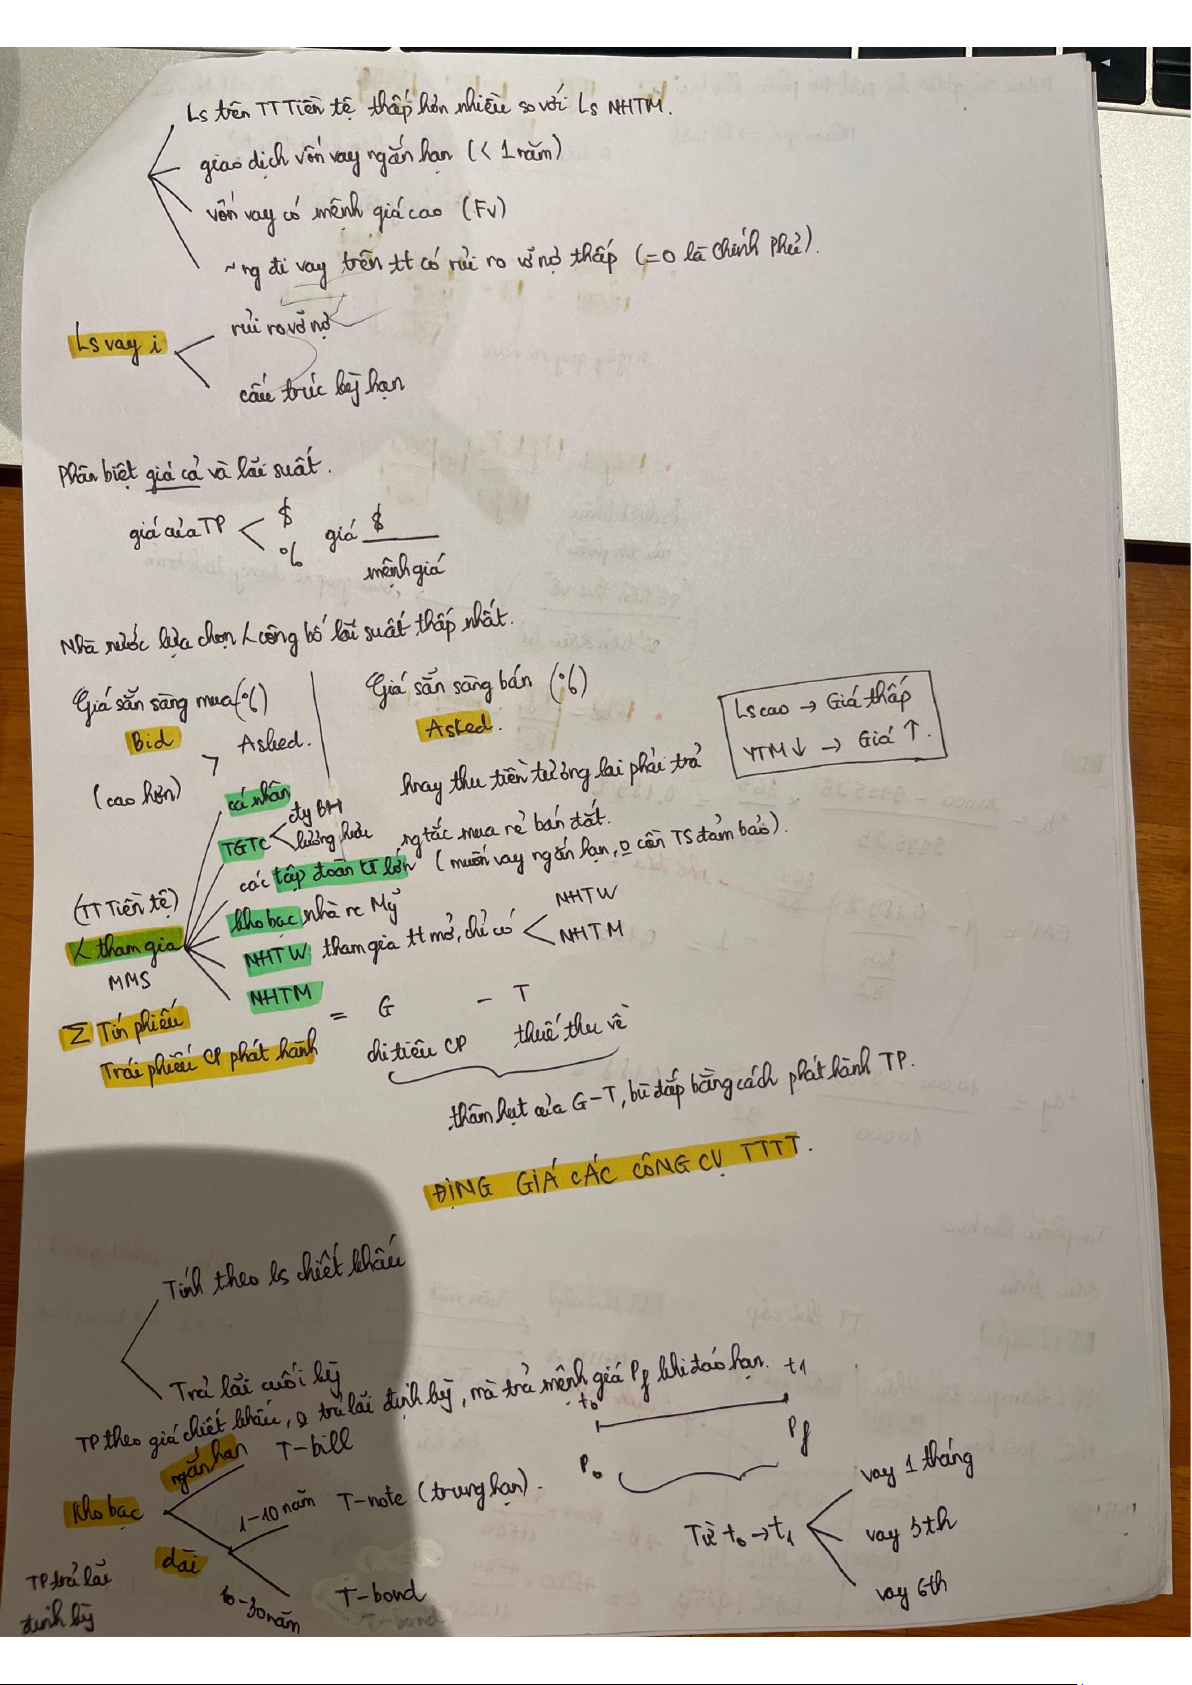 Ls trên TT Tiền tệ thấp hơn nhiều so với Ls NHTM.
giao dịch vốn vay ngắn hạn (< 1 năm)
vốn vay có mệnh giá cao (FV)
~ ng đi vay trên tt có rủi ro vỡ nợ thấp (=0 là chính phủ).
Ls vay i
rủi ro vỡ nợ
cấu trúc kỳ hạn
Phân biệt giá cả và lãi suất.
giá của TP
$
%
giá $
mệnh giá
Nhà nước lựa chọn < công bố lãi suất thấp nhất.
Giá sẵn sàng mua (%)
Giá sẵn sàng bán (%)
Bid > Asked.
Asked.
(cao hơn)
Ls cao → Giá thấp
YTM ↓ → Giá ↑.
hnay thu tiền tương lai phải trả
ng tắc mua rẻ bán đắt.
(TT Tiền tệ)
< tham gia
MMS
cá nhân
TGTC
cty BH
lương hưu
các tập đoàn KT lớn (muốn vay ngắn hạn, o cần TS đảm bảo).
kho bạc nhà nc Mỹ
NHTW tham gia tt mở, chỉ có
NHTW
NHTM
NHTM
Σ Tín phiếu
Trái phiếu CP phát hành = G - T
chi tiêu CP
thuế thu về
thâm hụt của G-T, bù đắp bằng cách phát hành TP.
ĐỊNG GIÁ CÁC CÔNG CỤ TTTT.
Tính theo ls chiết khấu
Trả lãi cuối kỳ
TP theo giá chiết khấu, o trả lãi định kỳ, mà trả mệnh giá Pf khi đáo hạn.
t0 t1
P0 Pf
Kho bạc
ngắn hạn T-bill
dài
1-10 năm T-note (trung hạn).
10-30 năm T-bond
T-bond
TP trả lãi
định kỳ
Từ t0 → t1
vay 1 tháng
vay 3th
vay 6th